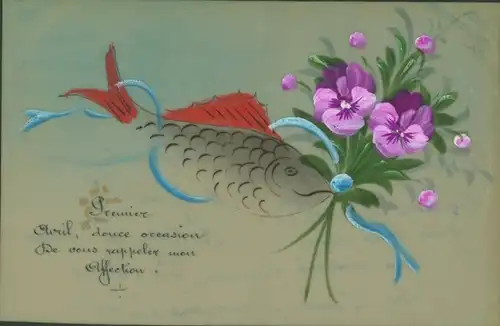 Premier
Avril, douce occasion
De vous rappeler mon
Affection.